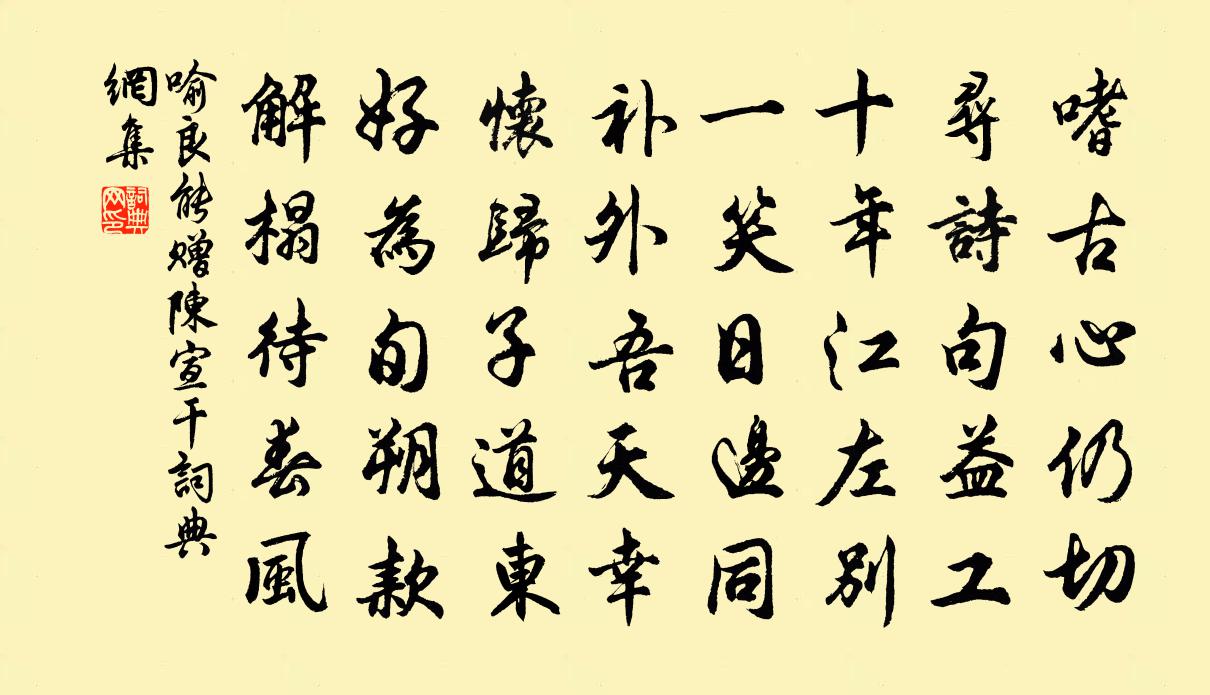 嗜古心仍切
尋詩句益工
十年江左別
一笑日邊同
补外吾天幸
懷歸子道東
好為旬朔款
解榻待春風
喻良能赠陳宣干詞典
網集
詞典
网印